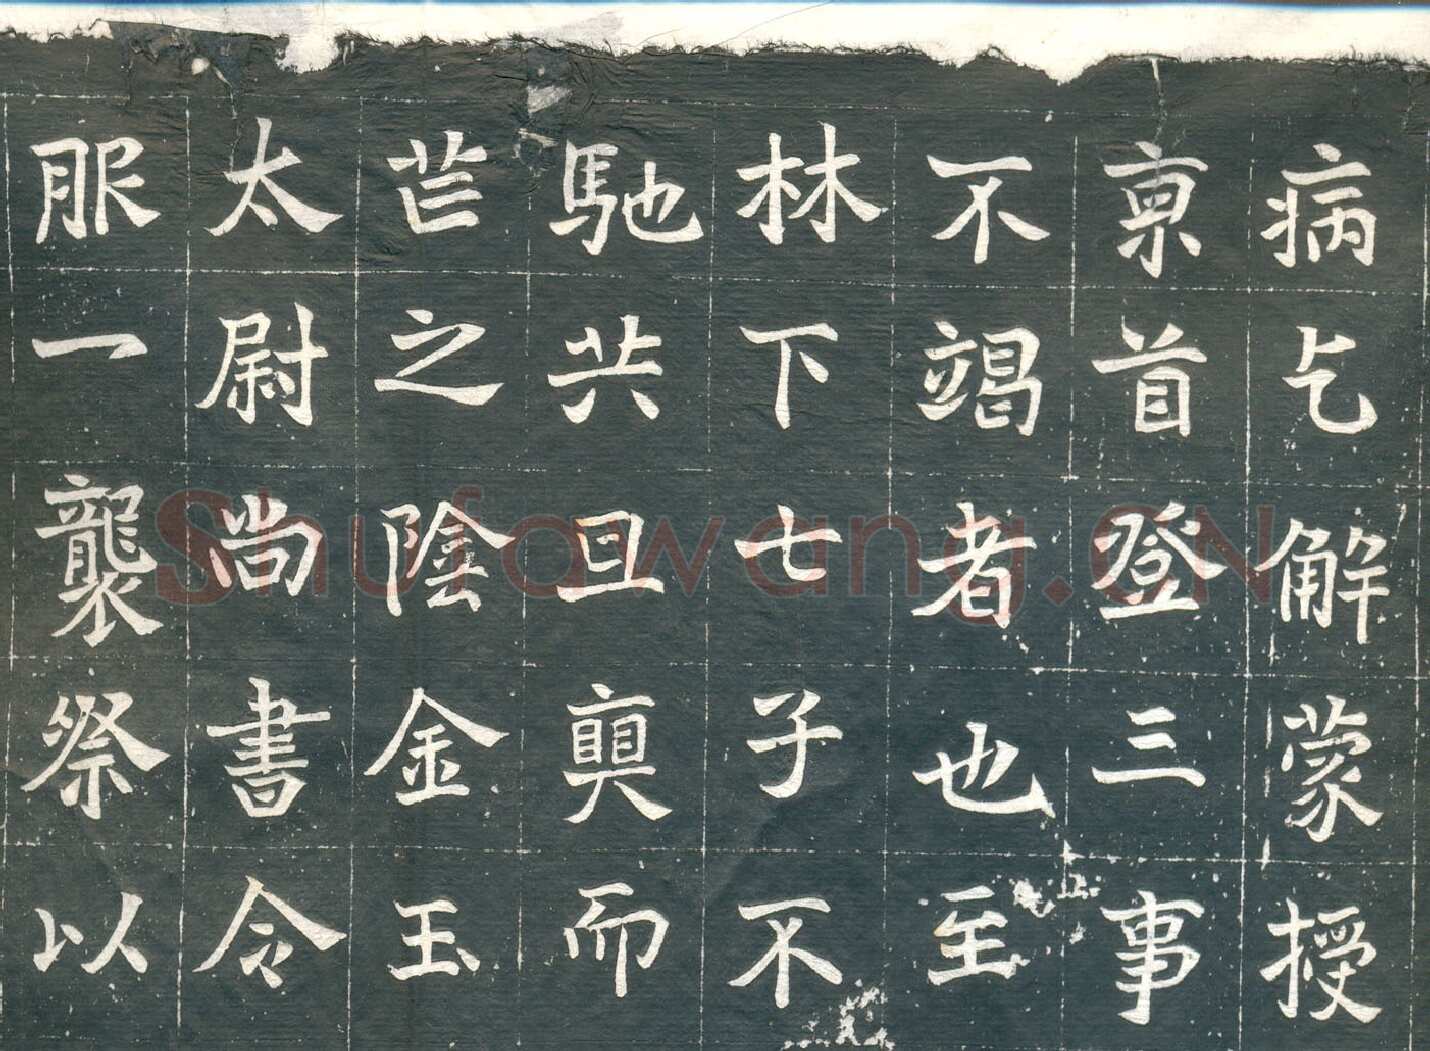 病乞解蒙授
亰首登三事
不竭者也至
林下七子不
馳共旦而
芒之陰金玉
太尉尚書令
服一襲祭以
Shufawang.CN